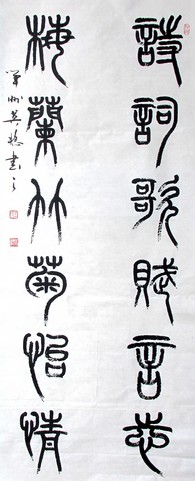 詩詞歌賦言志
梅蘭竹菊怡情
州書